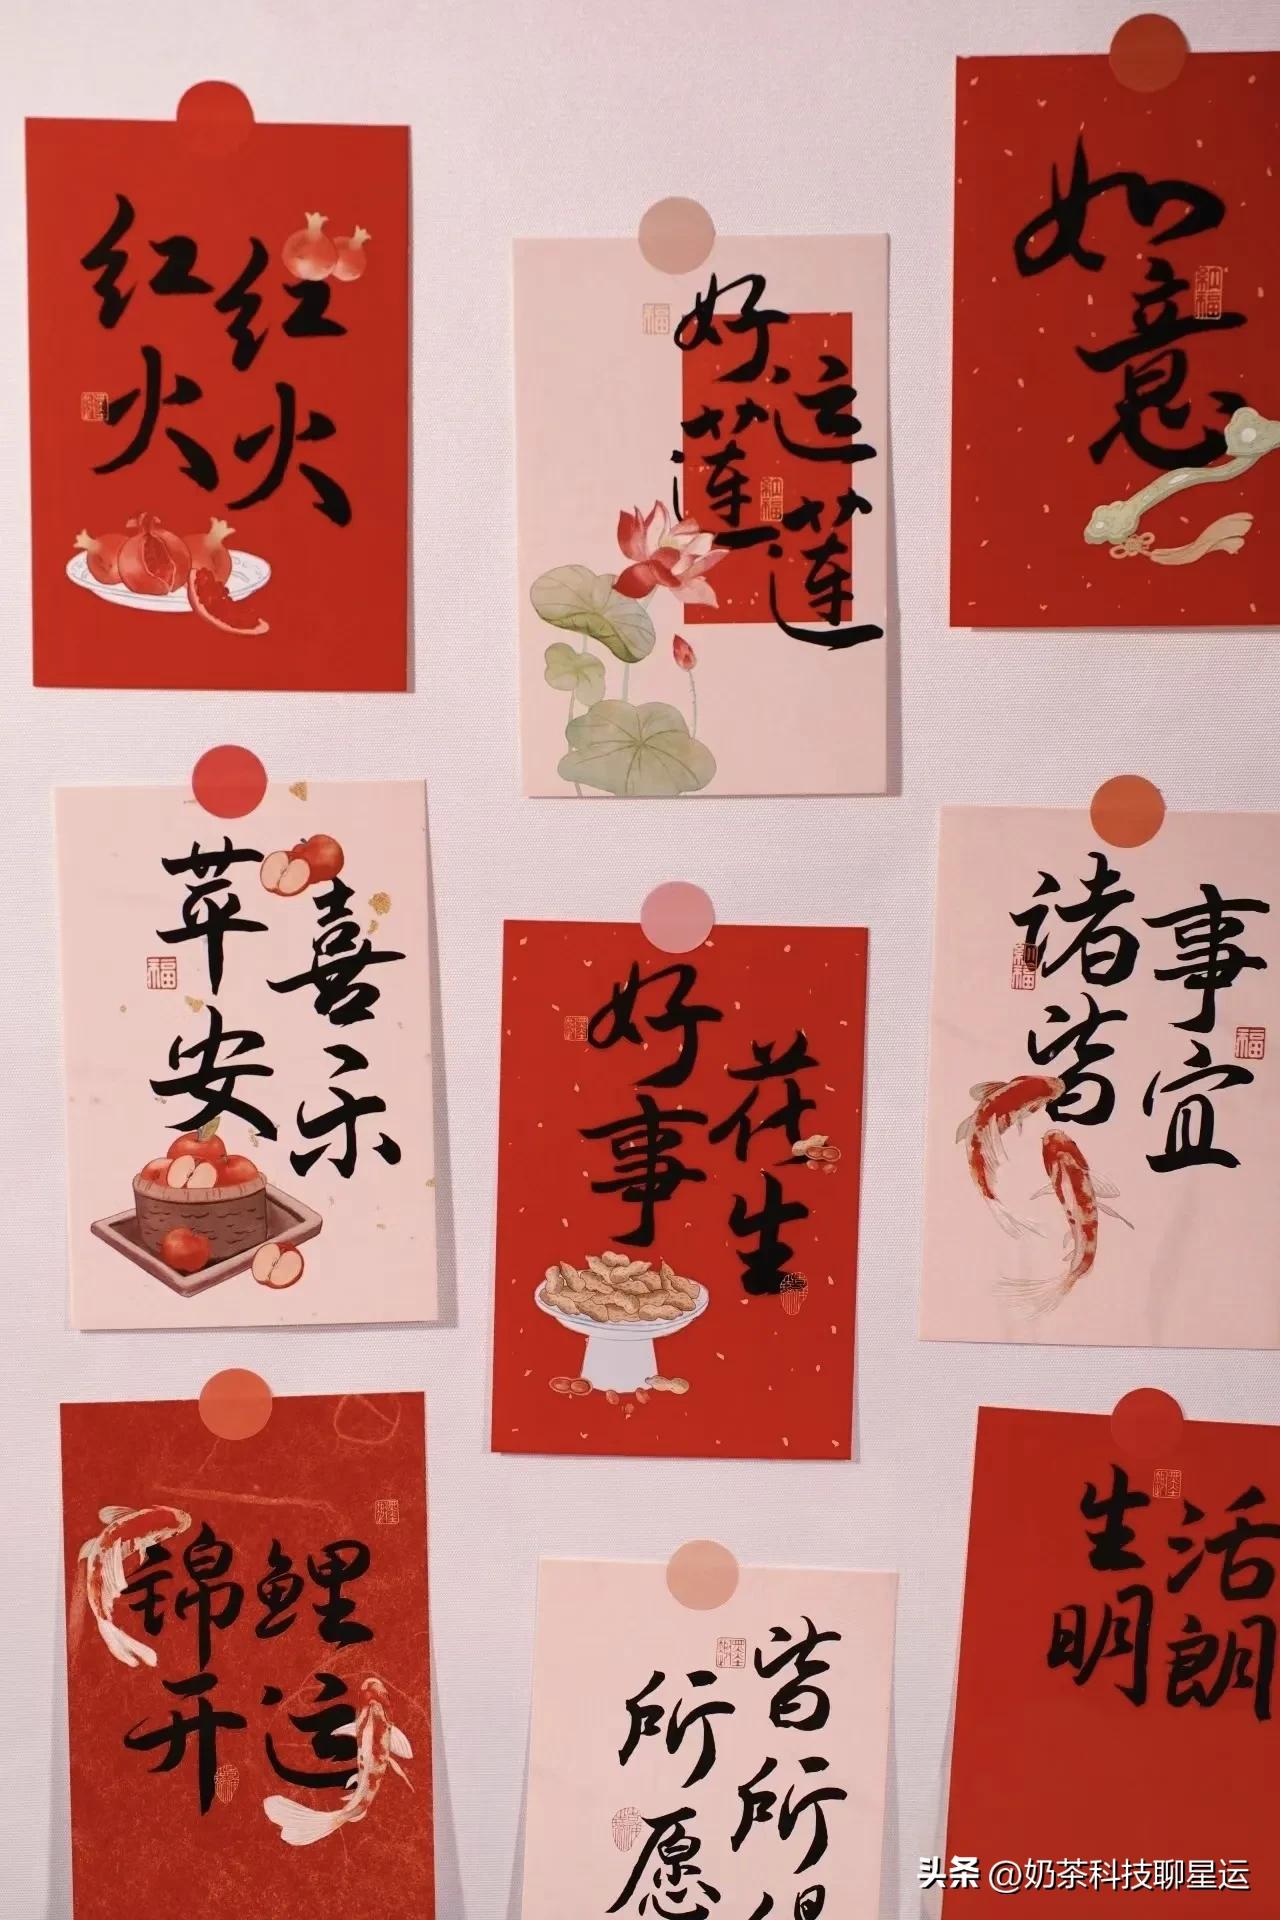 红红
火火
好运
莲莲
如意
苹安
喜乐
好事
花生
诸事
皆宜
锦鲤
开运
所愿
皆所
生活
明朗
福
福
福
头条 @奶茶科技聊星运